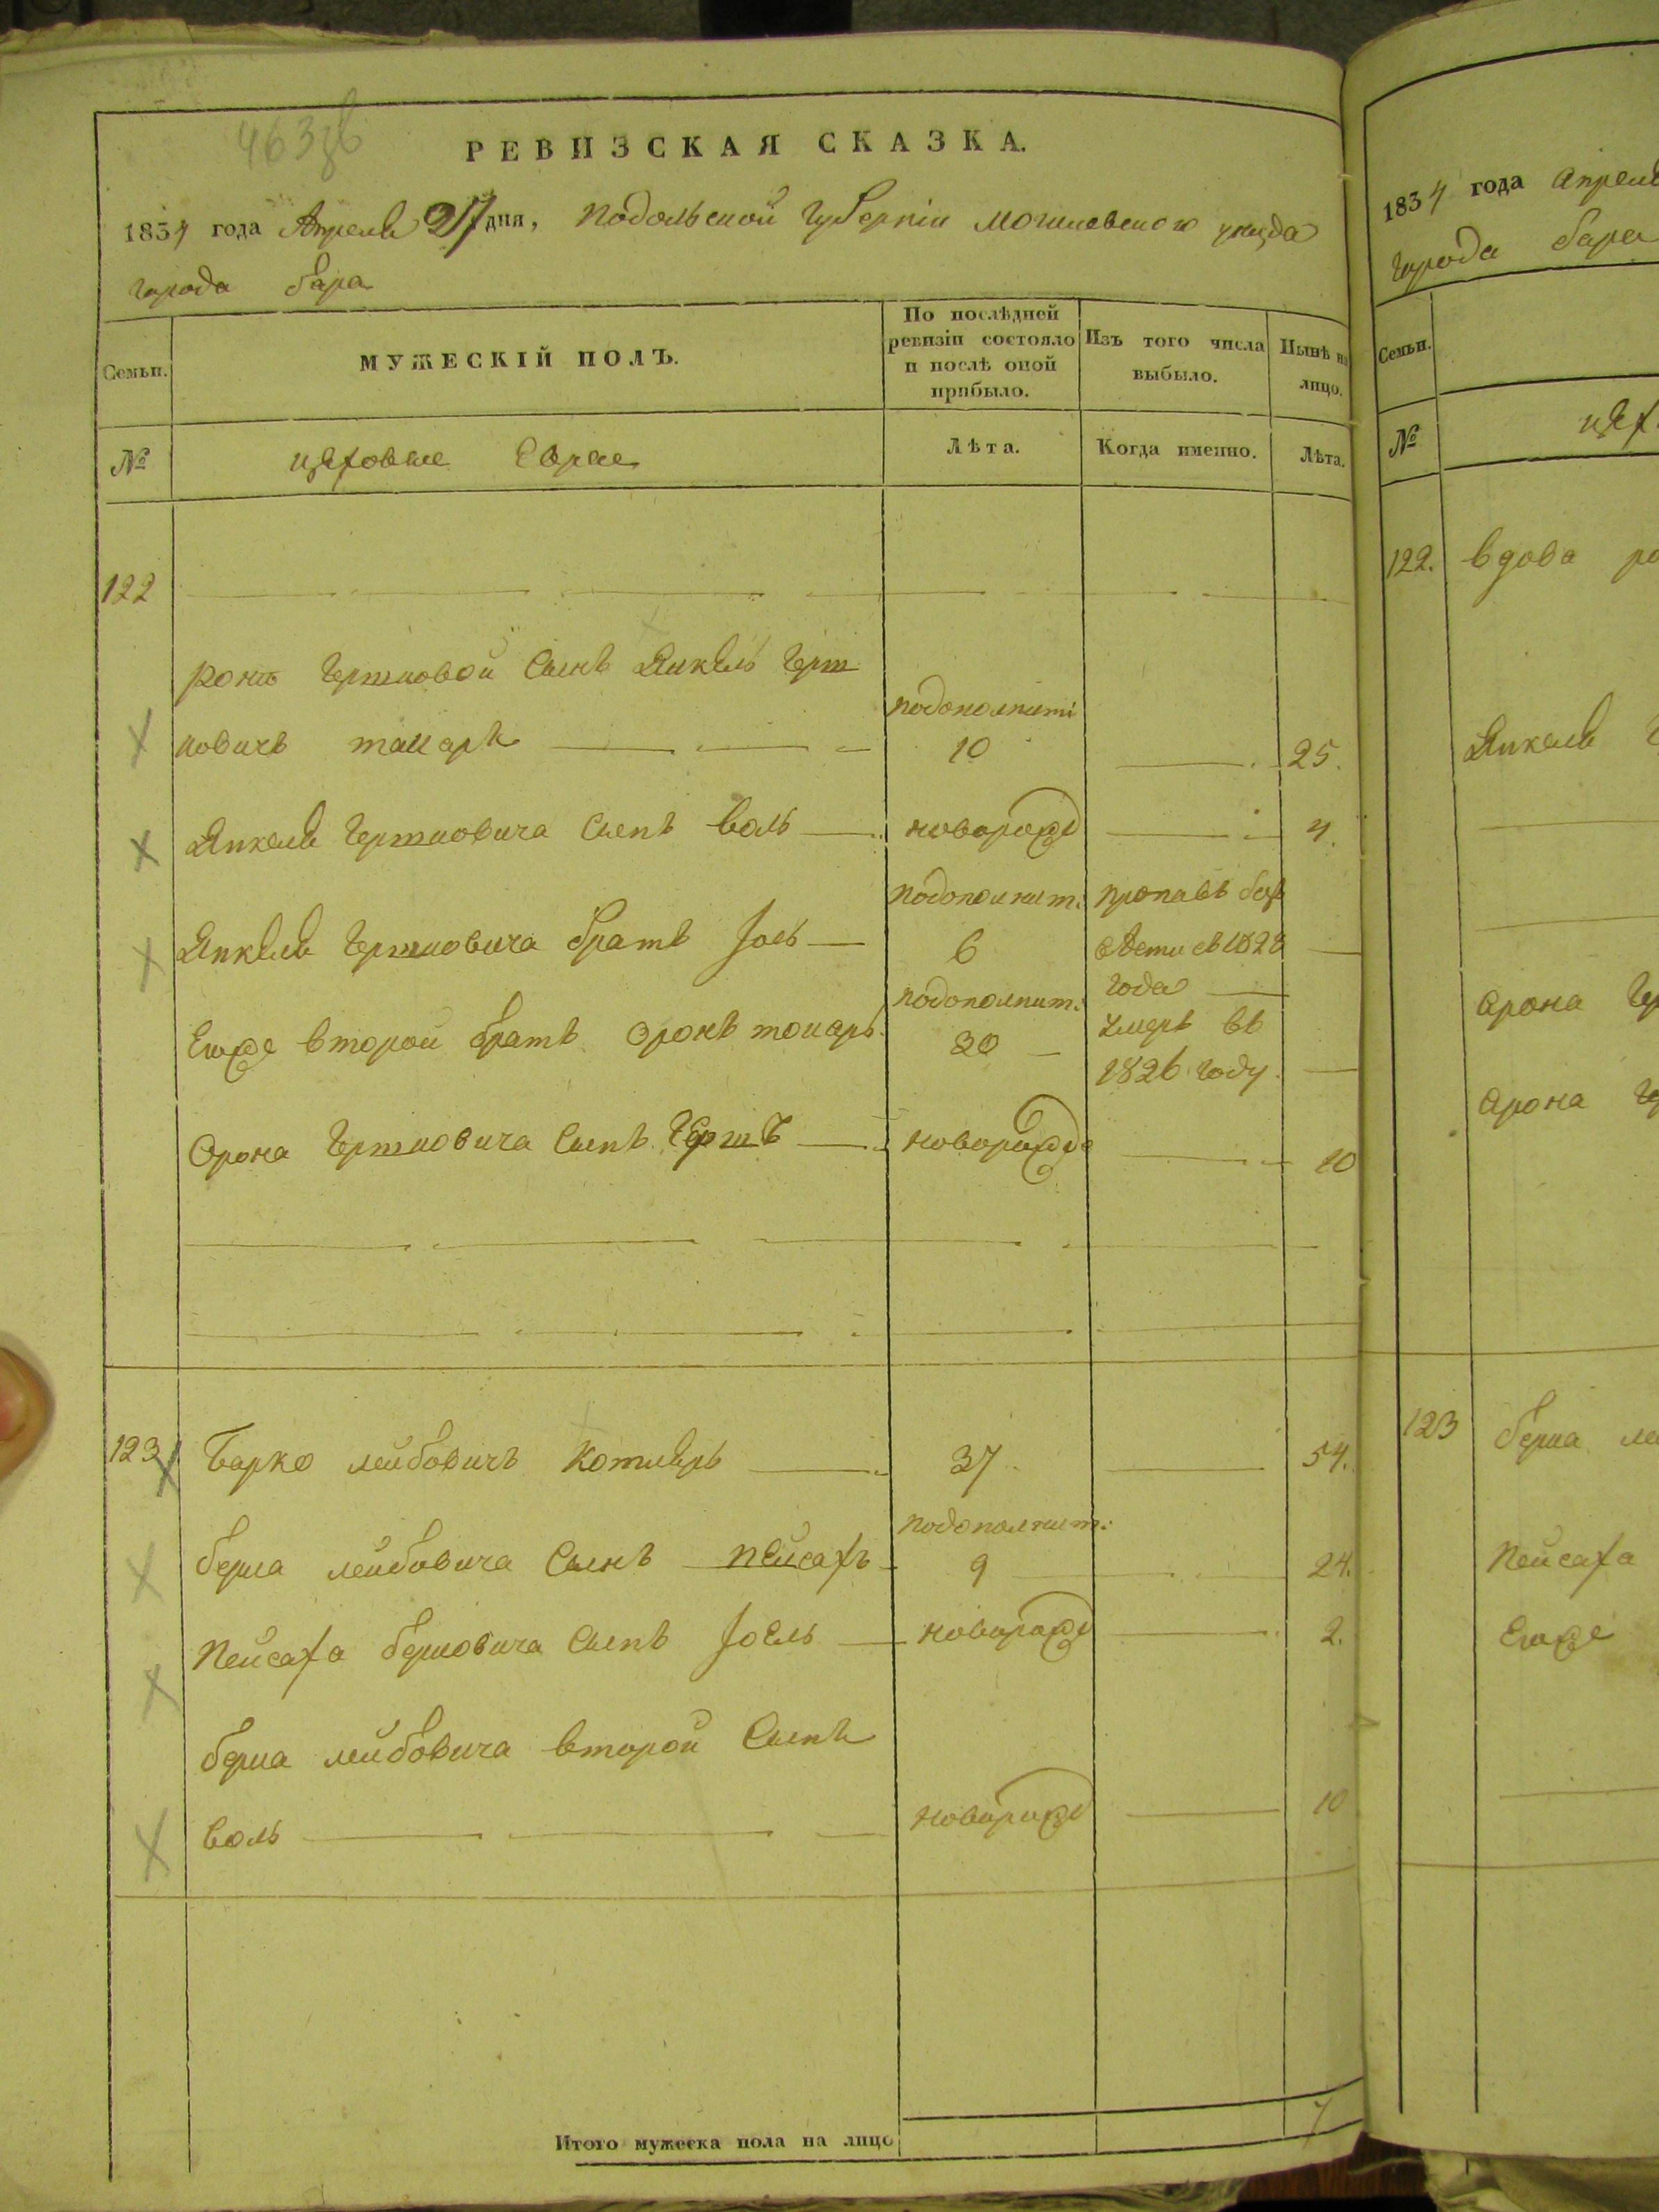 463
РЕВИЗСКАЯ СКАЗКА.
1834 года Апреля 27 дня, Подольской Губернiи Могилевского уезда
города бара
Семьи.
МУЖЕСКІЙ ПОЛЪ.
По послѣдней ревизіи состояло и послѣ оной прибыло.
Изъ того числа выбыло.
Нынѣ на лицо.
№
цеховые Евреи
Лѣта.
Когда именно.
Лѣта.
122
Гершковой Сынъ Янкель Герш
ковичъ токарь
подополнит:
10
25.
Янкеля Гершковича Сынъ Воль
новорожд
4.
Янкеля Гершковича братъ Іось
подополнит:
6
пропавъ безъ
вести съ 1828
года
Еюже второй братъ Оронъ токарь
подополнит:
30
умеръ въ
1826 году.
Орона Гершковича Сынъ Гершъ
новорожде
10
123
Берко лейбовичъ Котляръ
37
54.
берка лейбовича Сынъ Пейсахъ
подополнит:
9
24.
Пейсаха берковича Сынъ Іоель
новорожд
2.
берка лейбовича второй Сынъ
Воль
новорожд
10
Итого мужеска пола на лицо
7
1834 года Апреля
города бара
Семьи.
№
цех
122. вдова
Янкеля
Орона Гер
Орона Ге
123 берка ле
Пейсаха
Еюже